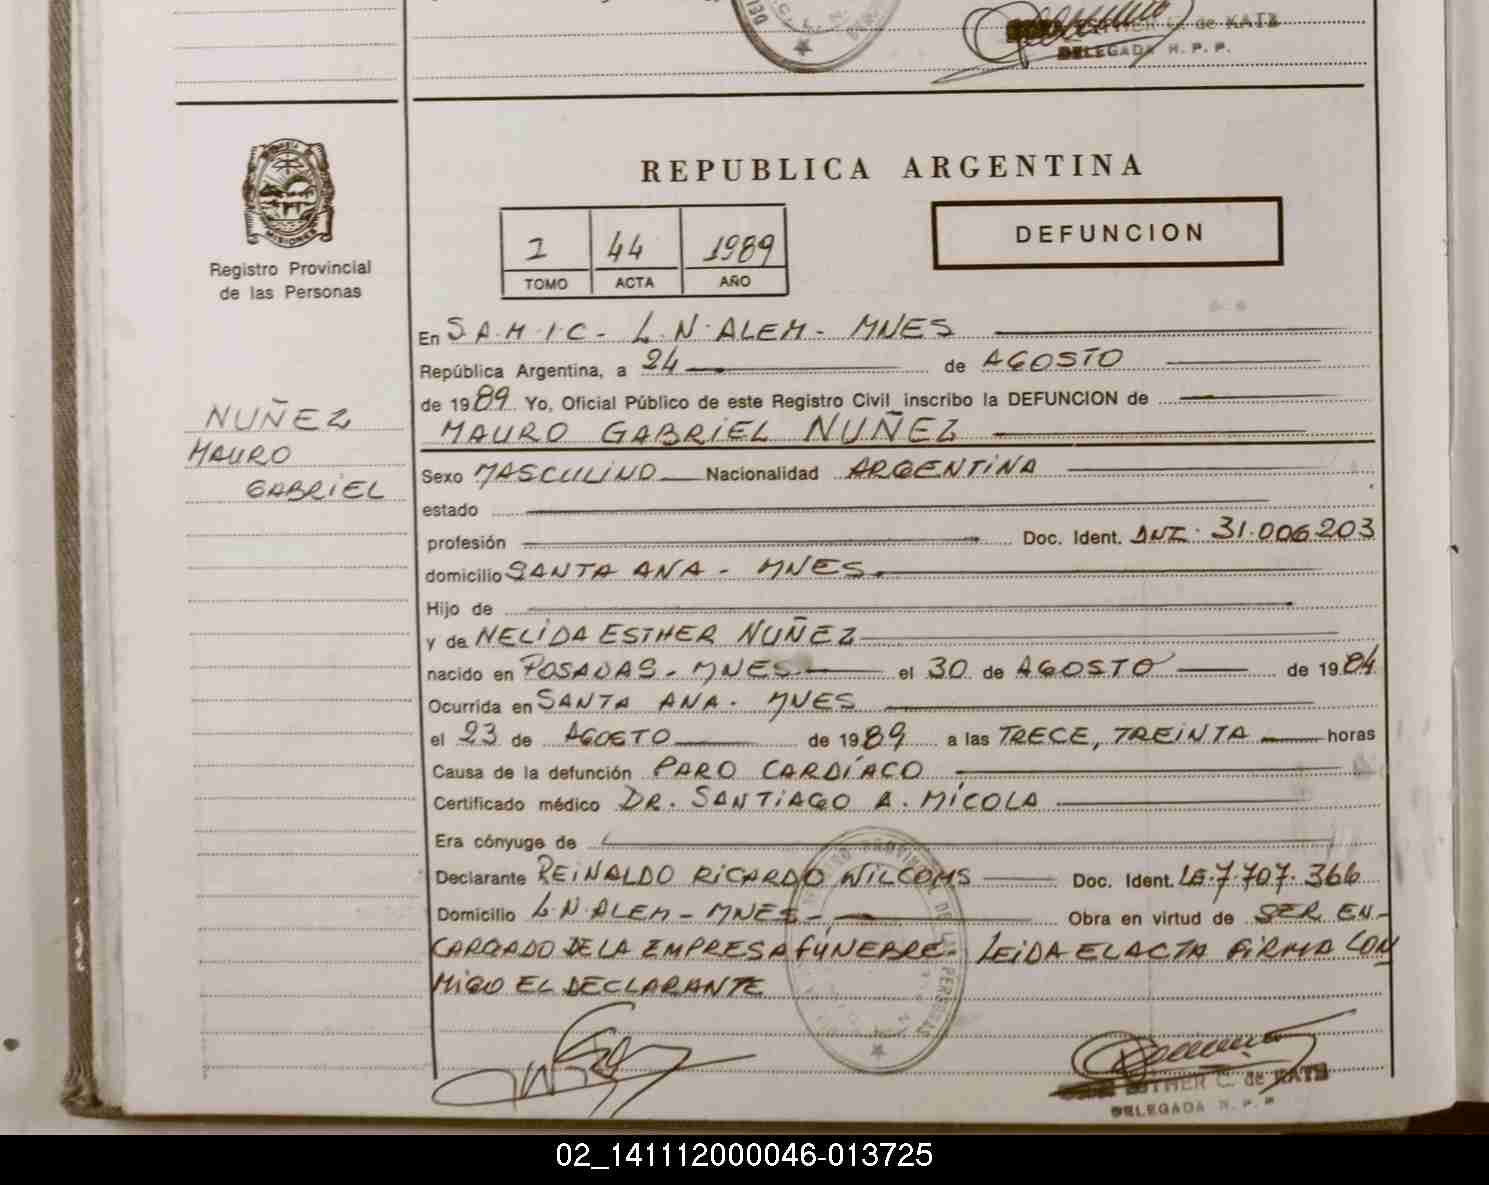 ESTHER C. de KATZ
DELEGADA R. P. P.
MISIONES
Registro Provincial
de las Personas
NUÑEZ
MAURO
GABRIEL
REPUBLICA ARGENTINA
I 44 1989
TOMO ACTA AÑO
DEFUNCION
En S.A.M.I.C- L.N.ALEM- MNES
República Argentina, a 24 de AGOSTO
de 1989 Yo, Oficial Público de este Registro Civil inscribo la DEFUNCION de
MAURO GABRIEL NUÑEZ
Sexo MASCULINO Nacionalidad ARGENTINA
estado
profesión Doc. Ident. DNI. 31.006.203
domicilio SANTA ANA - MNES.
Hijo de
y de NELIDA ESTHER NUÑEZ
nacido en POSADAS - MNES el 30 de AGOSTO de 1984
Ocurrida en SANTA ANA. MNES
el 23 de AGOSTO de 1989 a las TRECE, TREINTA horas
Causa de la defunción PARO CARDÍACO
Certificado médico DR. SANTIAGO A. MÍCOLA
Era cónyuge de
Declarante REINALDO RICARDO WILCOMS Doc. Ident. LE.7.707.366
Domicilio L.N.ALEM - MNES - Obra en virtud de SER EN-
CARGADO DE LA EMPRESA FÚNEBRE- LEIDA EL ACTA FIRMA CON
MIGO EL DECLARANTE
ESTHER C. de KATZ
DELEGADA R. P. P.
02_141112000046-013725